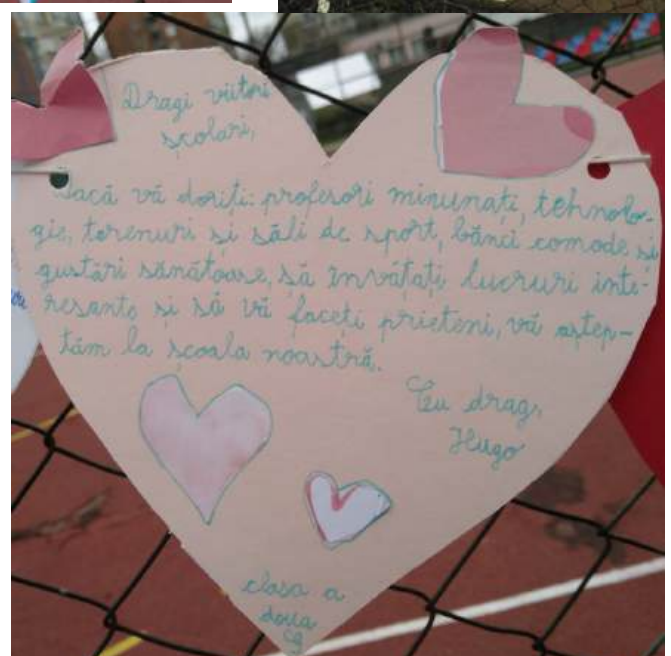 Dragi viitori
școlari,
Dacă vă doriți: profesori minunați, tehnolo-
gie, terenuri și săli de sport, bănci comode și
gustări sănătoase, să învățați lucruri inte-
resante și să vă faceți prieteni, vă aștep-
tăm la școala noastră.
Cu drag,
Hugo
clasa a
doua